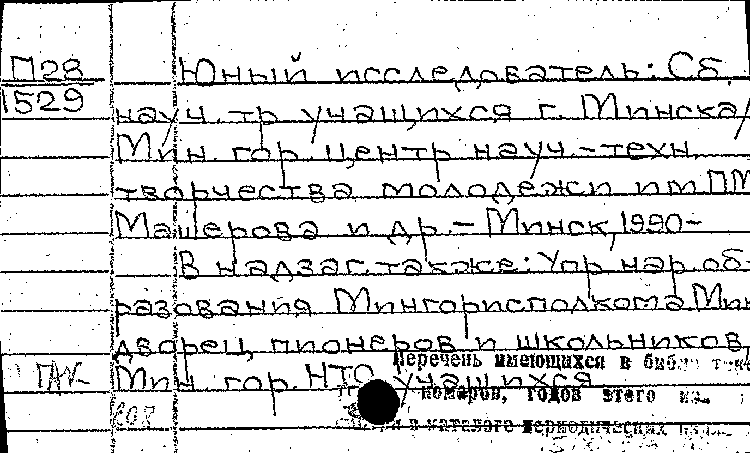 П28
1529
Юный исследователь: Сб.
науч. тр. учащихся г. Минска/
Мин. гор. центр науч.-техн.
творчества молодежи им П М
Машерова и др. - Минск, 1990-
В надзаг. также: Упр. нар. об-
разования Мингорисполкома, Мин.
дворец пионеров и школьников,
Мин. гор. НТО учащихся
Перечень имеющихся в библиотеке
номеров, годов этого
в каталоге периодических